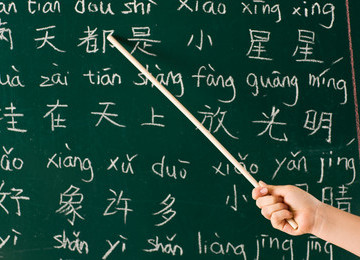 tiān dōu shì xiǎo xīng xīng
天 都 是 小 星 星
zài tiān shàng fàng guāng míng
在 天 上 放 光 明
xiàng xǔ duō xiǎo yǎn jīng
好 象 许 多 小
shǎn yì shǎn liàng jīng jīng